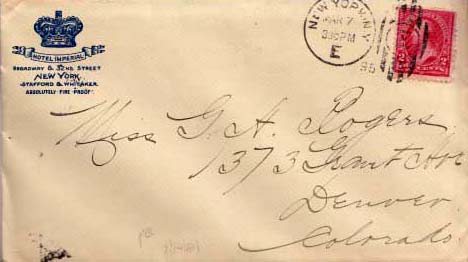 HOTEL IMPERIAL
BROADWAY & 32ND STREET
NEW YORK
STAFFORD & WHITAKER
ABSOLUTELY FIRE PROOF
NEW YORK, N.Y.
MAR 7
330PM
95
E
2 CENTS 2
Miss G. A. Rogers
1373 Grant Ave
Denver
Colorado.